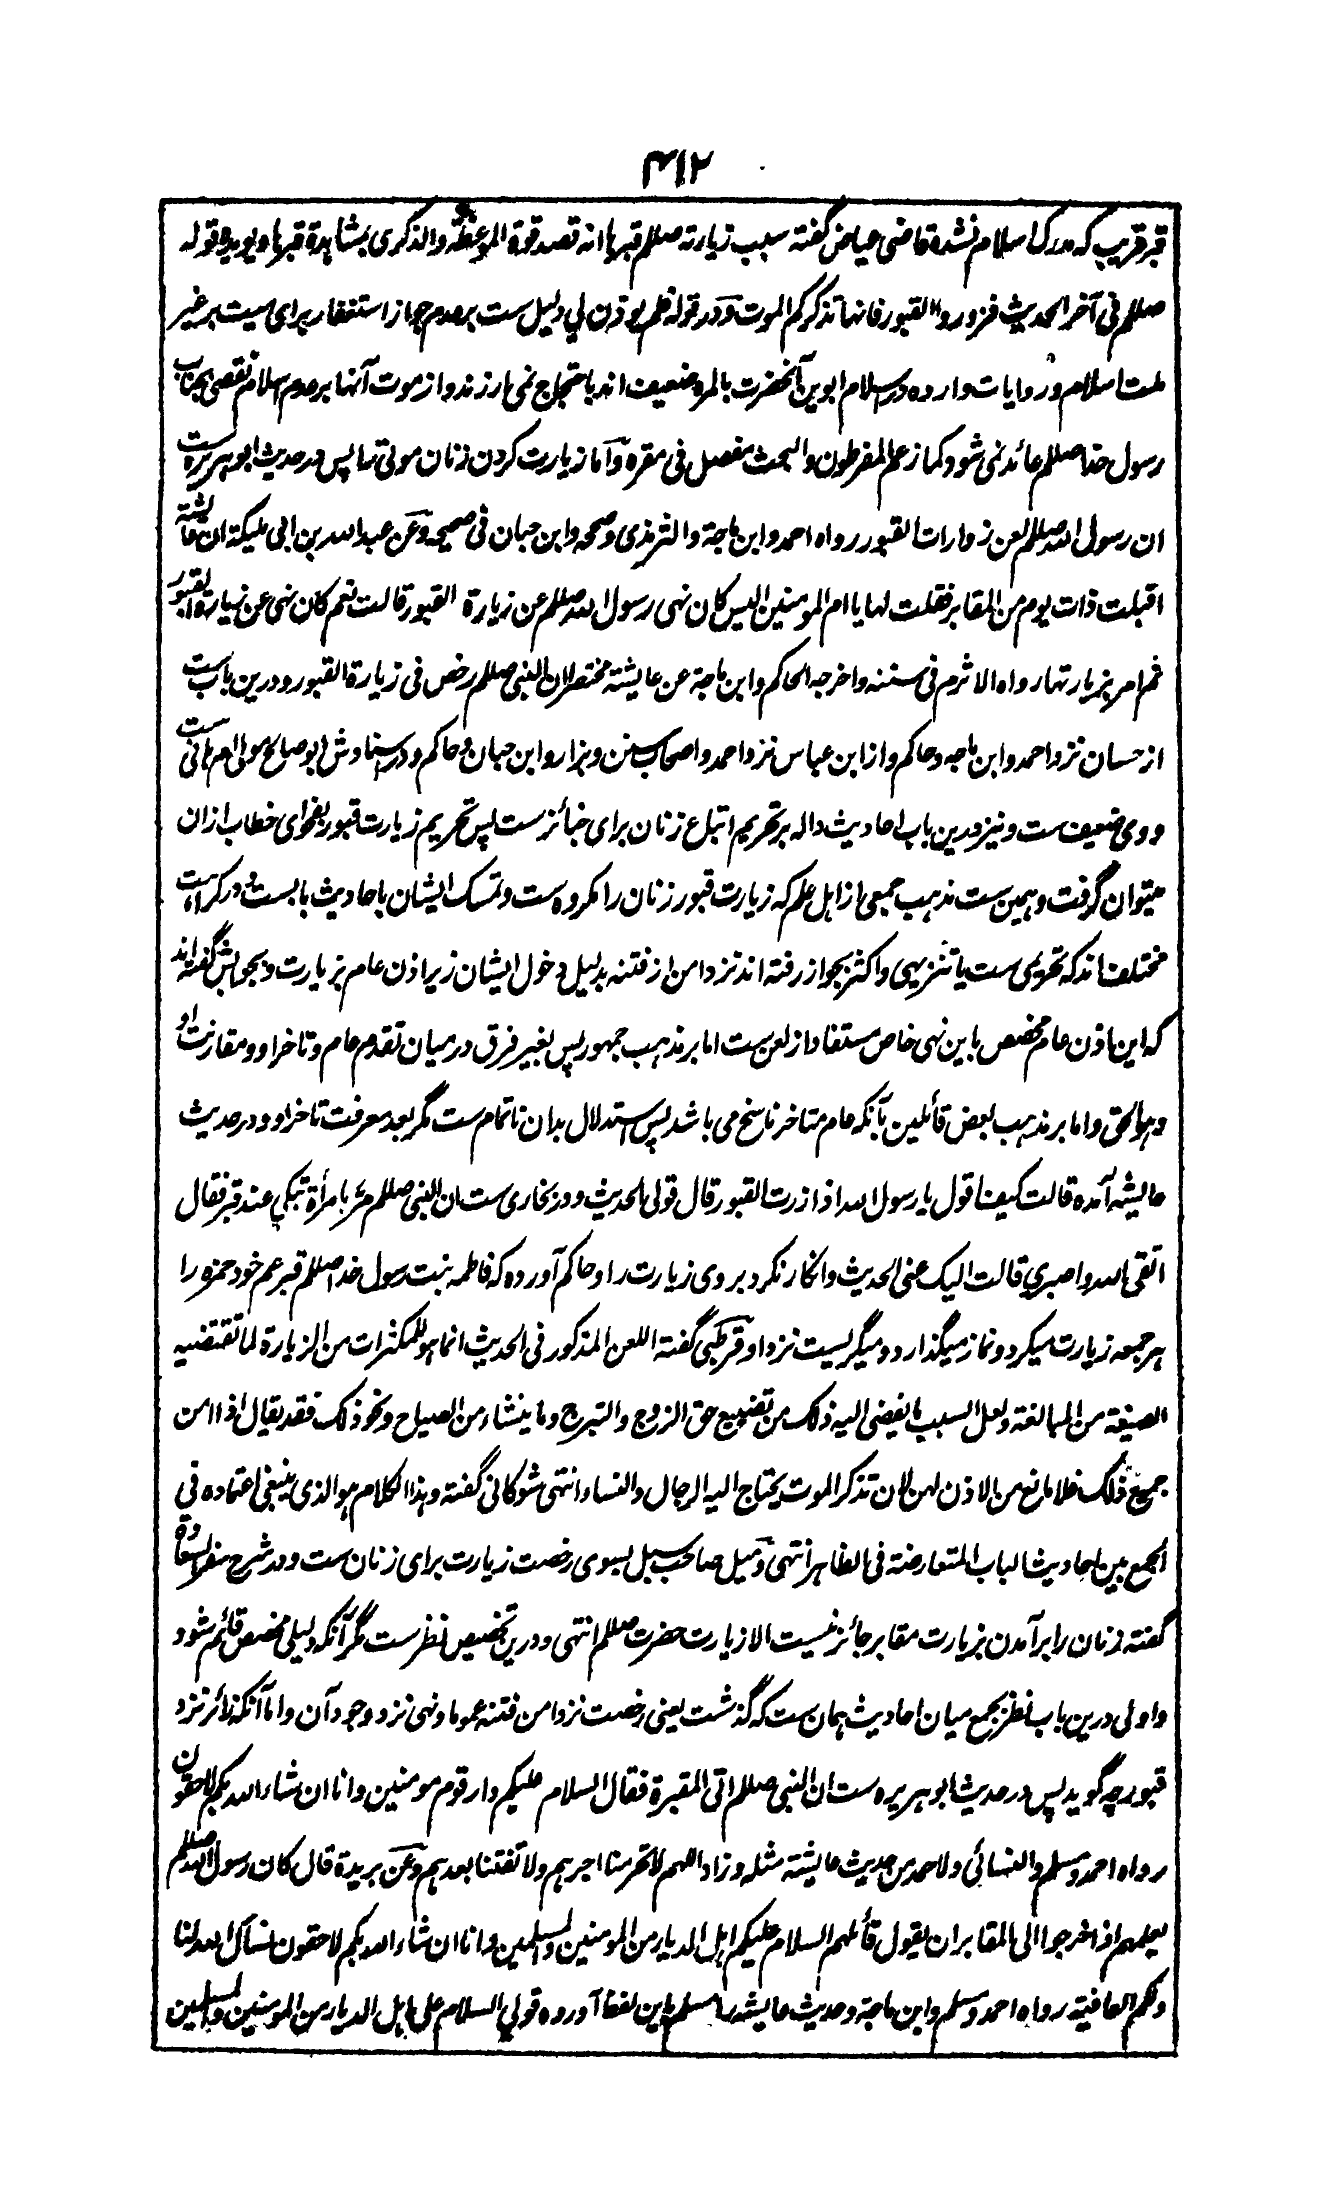 ۴۱۲
قبر قریب که مدرک اسلام نشده قاضی عیاض گفته سبب زیارته صللم قبرها انه قصد قوة الموعظة والذکری بمشاهدة قبرها ویویده قوله
صللم فی آخر الحدیث فزوروا القبور فانها تذکرکم الموت و در قوله فلم یوذن لی دلیل ست بر عدم جواز استغفار برای میت بر غیر
ملت اسلام و روایات وارده در اسلام ابوین آنحضرت بالمره ضعیف اند باحتجاج نمی ارزند و از موت آنها بر عدم اسلام نقصی بجناب
رسول خدا صللم عائد نمی شود کما زعم المفرطون والبحث مفصل فی مقره و اما زیارت کردن زنان موتی را پس در حدیث ابوهریره ست
ان رسول الله صللم لعن زوارات القبور رواه احمد وابن ماجة والترمذی وصححه وابن حبان فی صحیحه وعن عبدالله بن ابی ملیکة ان عائشة
اقبلت ذات یوم من المقابر فقلت لها یا ام المومنین الیس کان نهی رسول الله صللم عن زیارة القبور قالت نعم کان نهی عن زیارة القبور
ثم امر بزیارتها رواه الاثرم فی سننه واخرجه الحاکم وابن ماجة عن عایشة مختصرا ان النبی صللم رخص فی زیارة القبور و درین باب ست
از حسان نزد احمد وابن ماجه وحاکم و از ابن عباس نزد احمد واصحاب سنن وبزار وابن حبان وحاکم و در اسنادش ابو صالح مولی ام هانی ست
و وی ضعیف ست و نیز درین باب احادیث داله بر تحریم اتباع زنان برای جنائز ست پس تحریم زیارت قبور بفحوای خطاب ازان
میتوان گرفت و همین ست مذهب جمعی از اهل علم که زیارت قبور زنان را مکروه ست و تمسک ایشان باحادیث باب ست و در کراهت
مختلف اند که تحریمی ست یا تنزیهی و اکثر بجواز رفته اند نزد امن از فتنه بدلیل دخول ایشان زیر اذن عام بزیارت و بجوابش گفته اند
که این اذن عام مخصص باین نهی خاص مستفاد از لعن ست اما بر مذهب جمهور پس بغیر فرق در میان تقدم عام و تاخر او و مقارنت او
وهو الحق و اما بر مذهب بعض قائلین بآنکه عام متاخر ناسخ می باشد پس استدلال بدان ناتمام ست مگر بعد معرفت تاخر او و در حدیث
عایشه آمده قالت کیف اقول یا رسول الله اذا زرت القبور قال قولی الحدیث و در بخاری ست ان النبی صللم مر بامرأة تبکی عند قبر فقال
اتقی الله واصبری قالت الیک عنی الحدیث و انکار نکرد بروی زیارت را و حاکم آورده که فاطمه بنت رسول خدا صللم قبر عم خود حمزه را
هر جمعه زیارت میکرد و نماز میگذارد و میگریست نزد او قرطبی گفته اللعن المذکور فی الحدیث انما هو للمکثرات من الزیارة لما تقتضیه
الصیغة من المبالغة ولعل السبب ما یفضی الیه ذلک من تضییع حق الزوج والتبرج وما ینشاء من الصیاح ونحو ذلک فقد یقال اذا امن
جمیع ذلک فلا مانع من الاذن لهن لان تذکر الموت یحتاج الیه الرجال والنساء انتهی شوکانی گفته وهذا الکلام هو الذی ینبغی اعتماده فی
الجمع بین احادیث الباب المتعارضة فی الظاهر انتهی و میل صاحب سبل بسوی رخصت زیارت برای زنان ست و در شرح سفر السعادة
گفته زنان را برآمدن بزیارت مقابر جائز نیست الا زیارت حضرت صللم انتهی و درین تخصیص نظر ست مگر آنکه دلیلی مخصص قائم شود
و اولی درین باب نظر بجمع میان احادیث همان ست که گذشت یعنی رخصت نزد امن فتنه عموما و نهی نزد وجود آن و اما آنکه زائر نزد
قبور چه گوید پس در حدیث ابو هریره ست ان النبی صللم اتی المقبرة فقال السلام علیکم دار قوم مومنین وانا ان شاء الله بکم لاحقون
رواه احمد ومسلم والنسائی ولاحمد من حدیث عایشة مثله وزاد اللهم لا تحرمنا اجرهم ولا تفتنا بعدهم وعن بریدة قال کان رسول الله صللم
یعلمهم اذا خرجوا الی المقابر ان یقول قائلهم السلام علیکم اهل الدیار من المومنین والمسلمین وانا ان شاء الله بکم لاحقون نسأل الله لنا
ولکم العافیة رواه احمد ومسلم وابن ماجة وحدیث عایشه را مسلم باین لفظ آورده قولی السلام علی اهل الدیار من المومنین والمسلمین